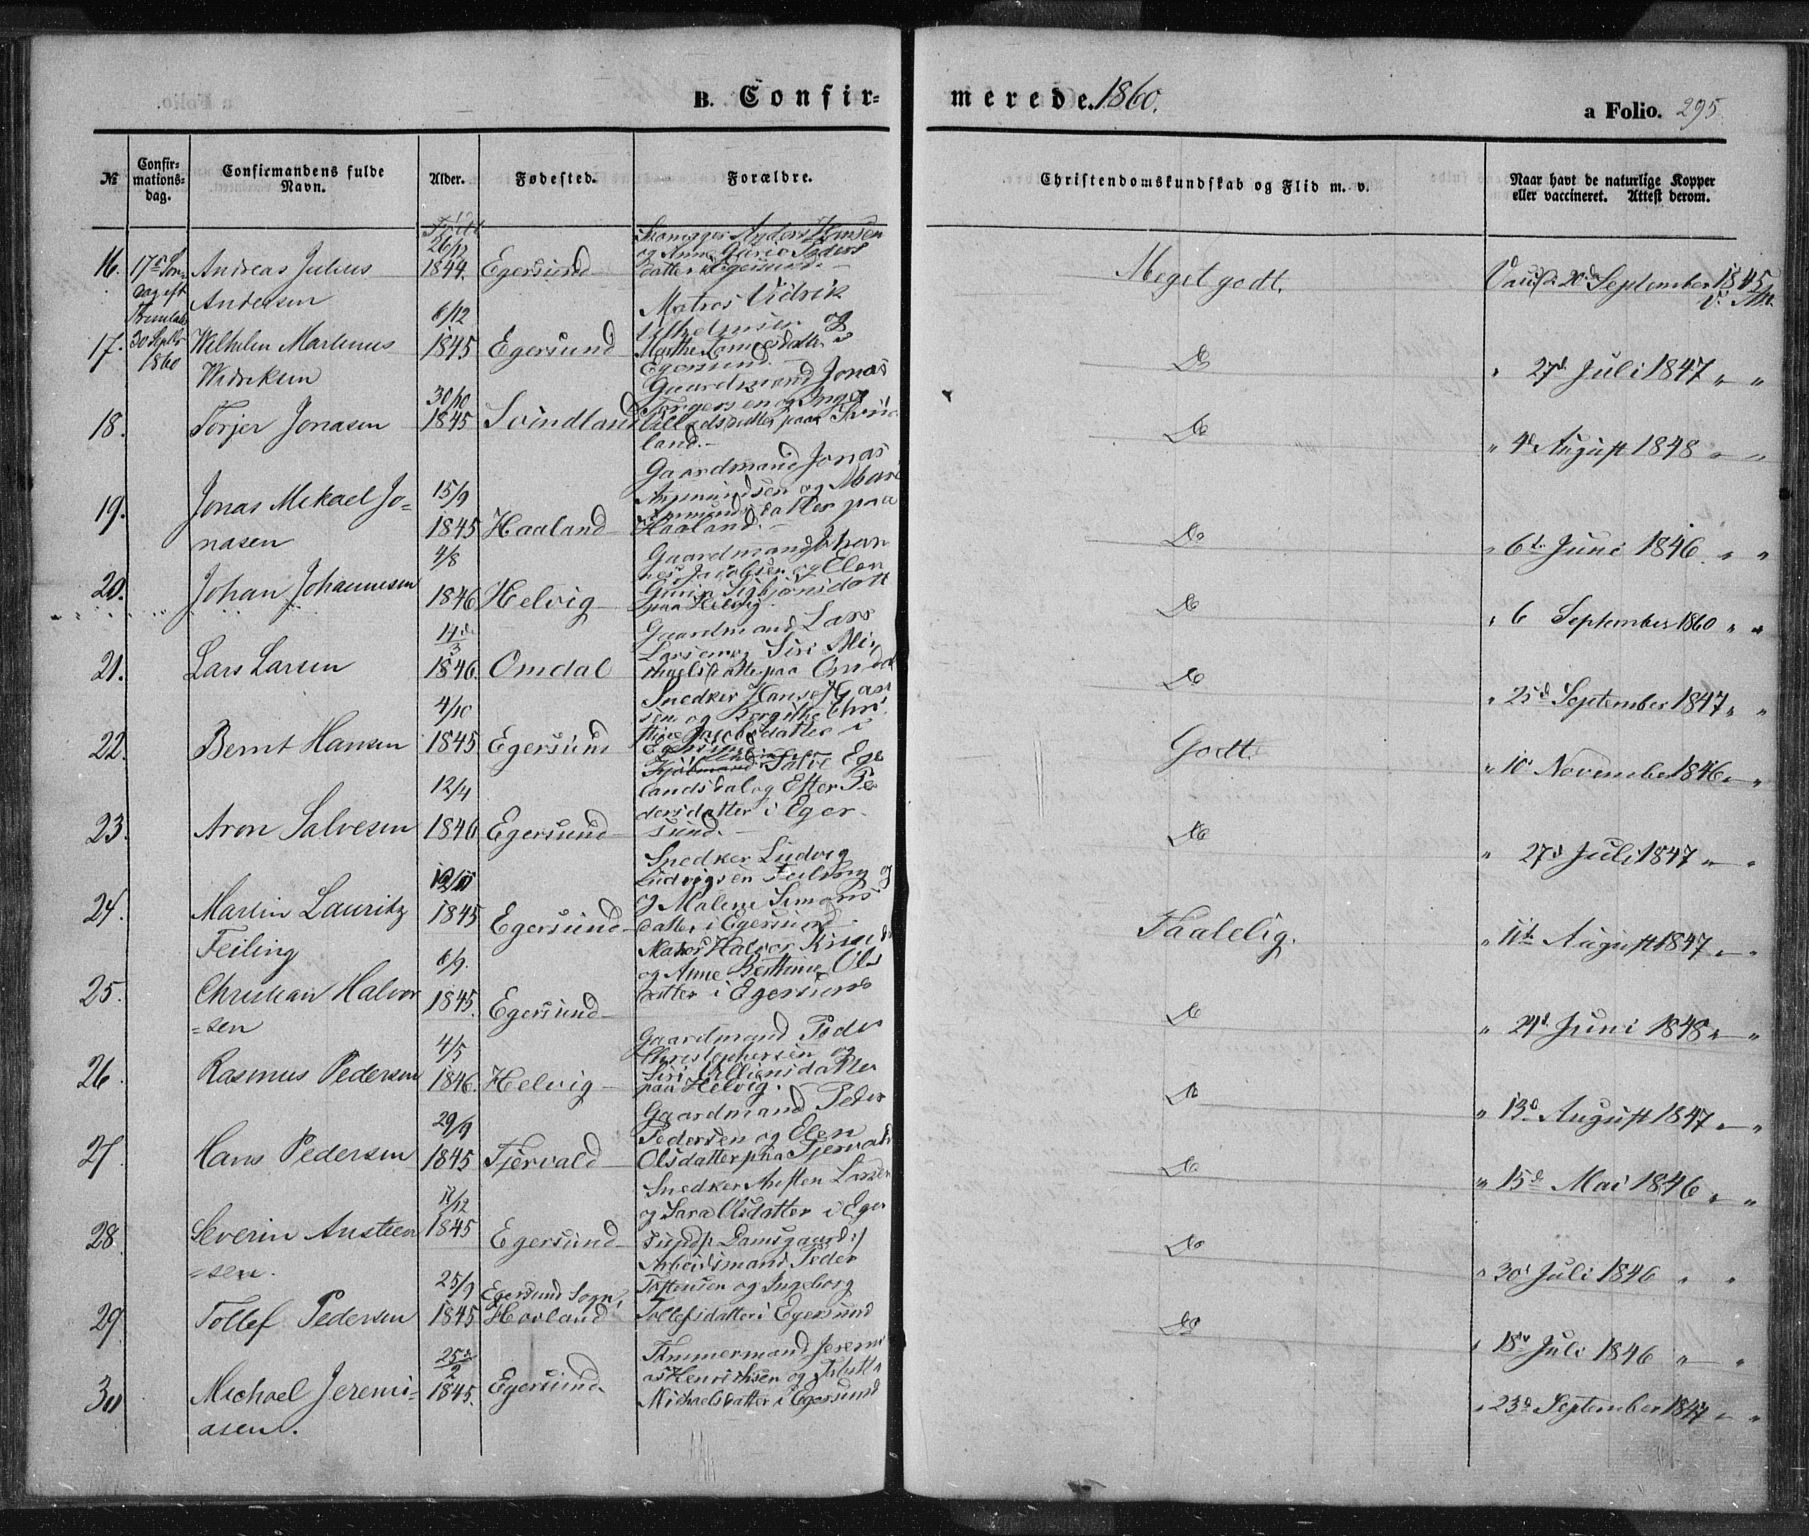 B. Confir-
merede. 1860.
a Folio. 295
№
Confir-
mations-
dag.
Confirmandens fulde
Navn.
Alder.
Fødested.
Forældre.
Christendomskundskab og Flid m. v.
Naar havt de naturlige Kopper
eller vaccineret. Attest derom.
16.
17de Søn-
dag eft
Trinitatis
30 Septbr
1860
Andreas Julius
Andersen
Født
26/12
1844.
Egersund
Skomager Anders Hansen
og Anne Gurie Peders
datter i Egersund.
Meget godt.
Vacc. d. 20de September 1845
17.
Wilhelm Martinus
Widriksen
6/12
1845
Egersund
Matros Vidrik
Vilhelmsen og
Marthe Tønnesdatter i
Egersund.
Do
" 27d Juli 1847 " "
18.
Torjer Jonasen
30/10
1845
Svindland
Gaardmand Jonas
Torgersen og Inger
datter paa Svind
land.
Do
" 4d August 1848 " "
19.
Jonas Mikael Jo=
nasen
15/9
1845
Haaland
Gaardmand Jonas
Asmundsen og Mari
Asmundsdatter paa
Haaland.
Do
" 6te Juni 1846. " "
20.
Johan Johannesen
4/8
1846
Helvig
Gaardmand Johan
nes Jacobsen og Elen
Gurine Sigbjørnsdatt
paa Helvig.
Do
" 6 September 1860 " "
21.
Lars Larsen
14de/3
1846.
Omdal
Gaardmand Lars
Larsen og Siri Mi
chaelsdatter paa Omdal
Do
" 25d September 1847 " "
22.
Bernt Hansen
4/10
1845
Egersund
Snedker Hans Han
sen og Borgithe Chri
stine Jacobsdatter i
Egersund
Godt
" 10d November 1846 " "
23.
Aron Salvesen
12/4
1846
Egersund
Salve Ege
landsdal og Ester Pe
dersdatter i Eger-
sund.
Do
" 27d Juli 1847 " "
24.
Martin Lauritz
Feiling
1845
Egersund
Snedker Ludvig
Ludvigsen Feiling og
og Malene Simons
datter i Egersund
Taalelig.
" 11te August 1847 " "
25.
Christian Halvor
=sen
6/9.
1845.
Egersund
Matros Halvor
og Anne Berthine Ols
datter i Egersund
Do
" 24d Juni 1848 " "
26.
Rasmus Pedersen
4/5
1846.
Helvig
Gaardmand Peder
Christophersen og
Siri Villiamsdatter
paa Helvig.
Do
" 13d August 1847 " "
27.
Hans Pedersen
29/9
1845
Tjervald
Gaardmand Peder
Pedersen og Elen
Olsdatter paa Tjervald
Do
" 15d Mai 1846 " "
28.
Severin Austen
=sen.
11/12
1845
Egersund
Snedker Austen Larsen
og Sara Olsdatter i Eger
sund /: Damsgaard :/
Do
" 30d Juli 1846 " "
29
Tollef Pedersen
25/9
1845
Egersund Sogn,
Hovland
Arbeidsmand Peder
Tostensen og Ingeborg
Tollefsdatter i Egersund
Do
" 18de Juli 1846 " "
30
Michael Jeremi=
asen.
25de/2
1845.
Egersund.
Tømmermand Jeremi
as Henrichsen og
Michaelsdatter i Egersund
" 23d September 1847 " "